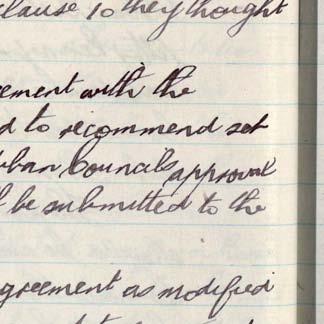 clause 10 they thought
ement with the
d to recommend set
ban Councils approval
l be submitted to the
greement as modified